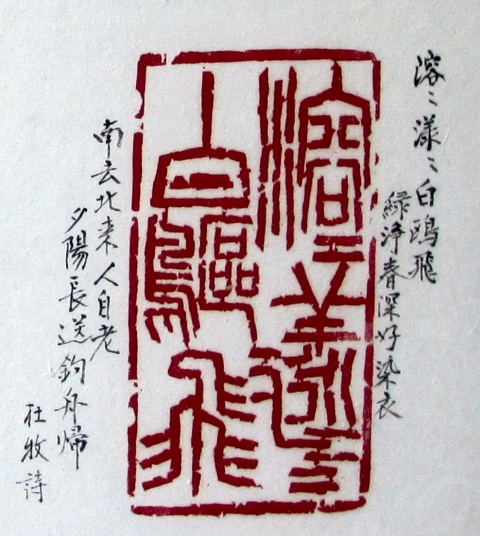 溶〻漾〻白鷗飛
綠淨春深好染衣
溶〻漾〻
白鷗飛
南去北来人自老
夕陽長送釣舟歸
杜牧詩